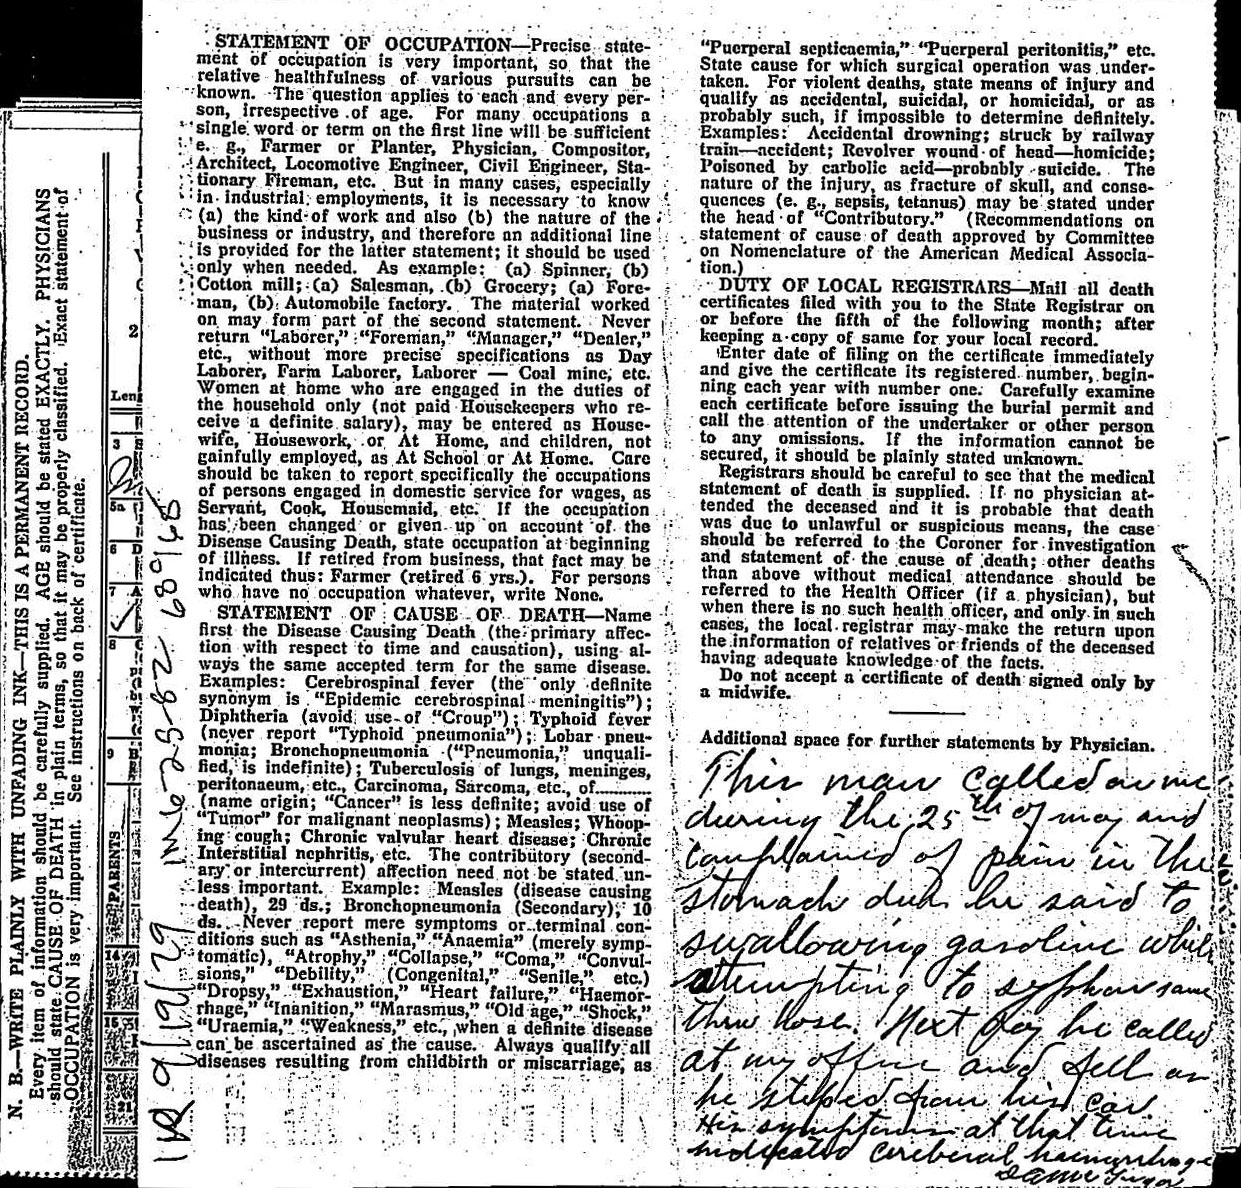 N. B.—WRITE PLAINLY WITH UNFADING INK—THIS IS A PERMANENT RECORD.
Every item of information should be carefully supplied. AGE should be stated EXACTLY. PHYSICIANS
should state CAUSE OF DEATH in plain terms, so that it may be properly classified. Exact statement of
OCCUPATION is very important. See instructions on back of certificate.
2
Len
3
5a
6 D
7 A
8
9
PARENTS
14
15
21
1R 9/19/29 1M6-25-82-68968
STATEMENT OF OCCUPATION—Precise state-
ment of occupation is very important, so that the
relative healthfulness of various pursuits can be
known. The question applies to each and every per-
son, irrespective of age. For many occupations a
single word or term on the first line will be sufficient
e. g., Farmer or Planter, Physician, Compositor,
Architect, Locomotive Engineer, Civil Engineer, Sta-
tionary Fireman, etc. But in many cases, especially
in industrial employments, it is necessary to know
(a) the kind of work and also (b) the nature of the
business or industry, and therefore an additional line
is provided for the latter statement; it should be used
only when needed. As example: (a) Spinner, (b)
Cotton mill; (a) Salesman, (b) Grocery; (a) Fore-
man, (b) Automobile factory. The material worked
on may form part of the second statement. Never
return "Laborer," "Foreman," "Manager," "Dealer,"
etc., without more precise specifications as Day
Laborer, Farm Laborer, Laborer — Coal mine, etc.
Women at home who are engaged in the duties of
the household only (not paid Housekeepers who re-
ceive a definite salary), may be entered as House-
wife, Housework, or At Home, and children, not
gainfully employed, as At School or At Home. Care
should be taken to report specifically the occupations
of persons engaged in domestic service for wages, as
Servant, Cook, Housemaid, etc. If the occupation
has been changed or given up on account of the
Disease Causing Death, state occupation at beginning
of illness. If retired from business, that fact may be
indicated thus: Farmer (retired 6 yrs.). For persons
who have no occupation whatever, write None.
STATEMENT OF CAUSE OF DEATH—Name
first the Disease Causing Death (the primary affec-
tion with respect to time and causation), using al-
ways the same accepted term for the same disease.
Examples: Cerebrospinal fever (the only definite
synonym is "Epidemic cerebrospinal meningitis");
Diphtheria (avoid use of "Croup"); Typhoid fever
(never report "Typhoid pneumonia"); Lobar pneu-
monia; Bronchopneumonia ("Pneumonia," unquali-
fied, is indefinite); Tuberculosis of lungs, meninges,
peritonaeum, etc., Carcinoma, Sarcoma, etc., of............
(name origin; "Cancer" is less definite; avoid use of
"Tumor" for malignant neoplasms); Measles; Whoop-
ing cough; Chronic valvular heart disease; Chronic
Interstitial nephritis, etc. The contributory (second-
ary or intercurrent) affection need not be stated un-
less important. Example: Measles (disease causing
death), 29 ds.; Bronchopneumonia (Secondary), 10
ds. Never report mere symptoms or terminal con-
ditions such as "Asthenia," "Anaemia" (merely symp-
tomatic), "Atrophy," "Collapse," "Coma," "Convul-
sions," "Debility," (Congenital," "Senile," etc.)
"Dropsy," "Exhaustion," "Heart failure," "Haemor-
rhage," "Inanition," "Marasmus," "Old age," "Shock,"
"Uraemia," "Weakness," etc., when a definite disease
can be ascertained as the cause. Always qualify all
diseases resulting from childbirth or miscarriage, as
"Puerperal septicaemia," "Puerperal peritonitis," etc.
State cause for which surgical operation was under-
taken. For violent deaths, state means of injury and
qualify as accidental, suicidal, or homicidal, or as
probably such, if impossible to determine definitely.
Examples: Accidental drowning; struck by railway
train—accident; Revolver wound of head—homicide;
Poisoned by carbolic acid—probably suicide. The
nature of the injury, as fracture of skull, and conse-
quences (e. g., sepsis, tetanus) may be stated under
the head of "Contributory." (Recommendations on
statement of cause of death approved by Committee
on Nomenclature of the American Medical Associa-
tion.)
DUTY OF LOCAL REGISTRARS—Mail all death
certificates filed with you to the State Registrar on
or before the fifth of the following month; after
keeping a copy of same for your local record.
Enter date of filing on the certificate immediately
and give the certificate its registered number, begin-
ning each year with number one. Carefully examine
each certificate before issuing the burial permit and
call the attention of the undertaker or other person
to any omissions. If the information cannot be
secured, it should be plainly stated unknown.
Registrars should be careful to see that the medical
statement of death is supplied. If no physician at-
tended the deceased and it is probable that death
was due to unlawful or suspicious means, the case
should be referred to the Coroner for investigation
and statement of the cause of death; other deaths
than above without medical attendance should be
referred to the Health Officer (if a physician), but
when there is no such health officer, and only in such
cases, the local registrar may make the return upon
the information of relatives or friends of the deceased
having adequate knowledge of the facts.
Do not accept a certificate of death signed only by
a midwife.
Additional space for further statements by Physician.
This man called on me
during the 25th of may and
complained of pain in the
stomach due he said to
swallowing gasoline while
attempting to syphon same
thru hose. Next day he called
at my office and fell as
he stepped from his car
His symptoms at that time
indicated cerebral haemorrhage